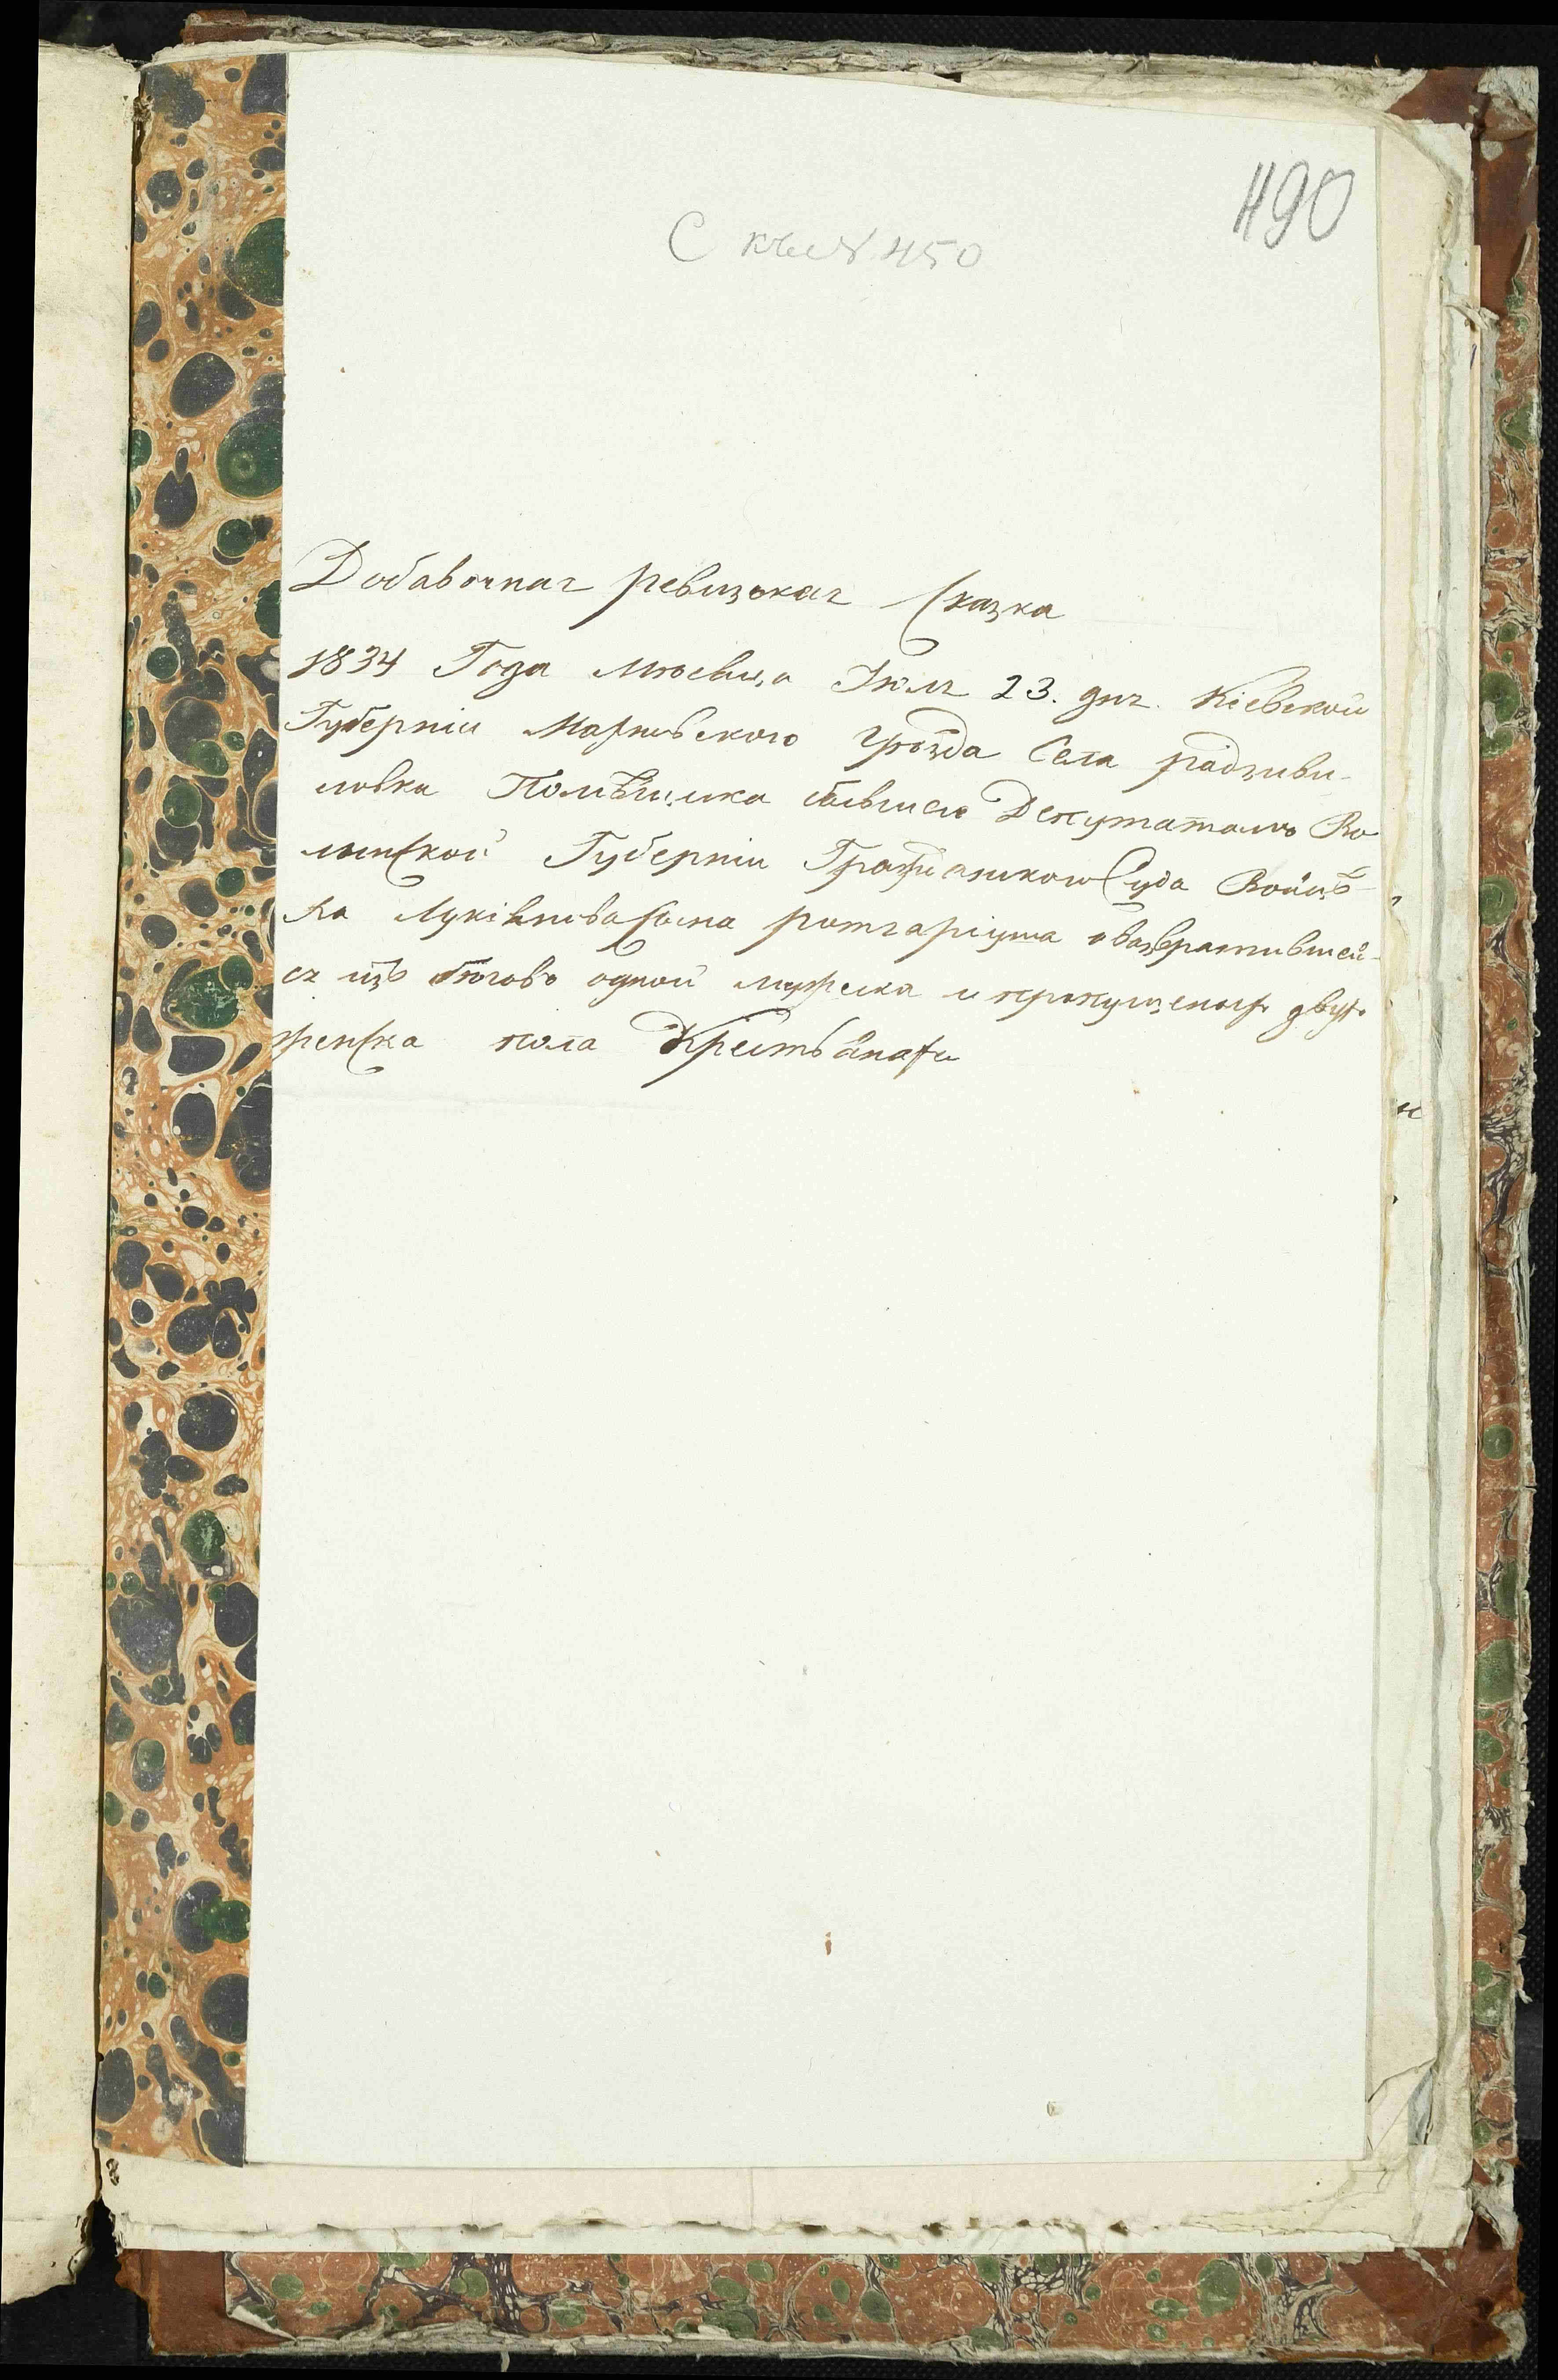 490
С къ № 450
Добавочная ревизкая Сказка
1834 Года мѣсяца Іюля 23. дня. Кіевской
Губерніи Махновского Уѣзда Села радзиви-
ловка Помѣщика бывшего Депутатомъ Во
лынской Губерніи Гражданского Суда Войцѣ-
ха Лукіянова Сына ротгаріуша о возвратившей-
ся изъ бѣговъ одной мужска и пропущеныхъ двухъ
женска пола Крестьянахъ